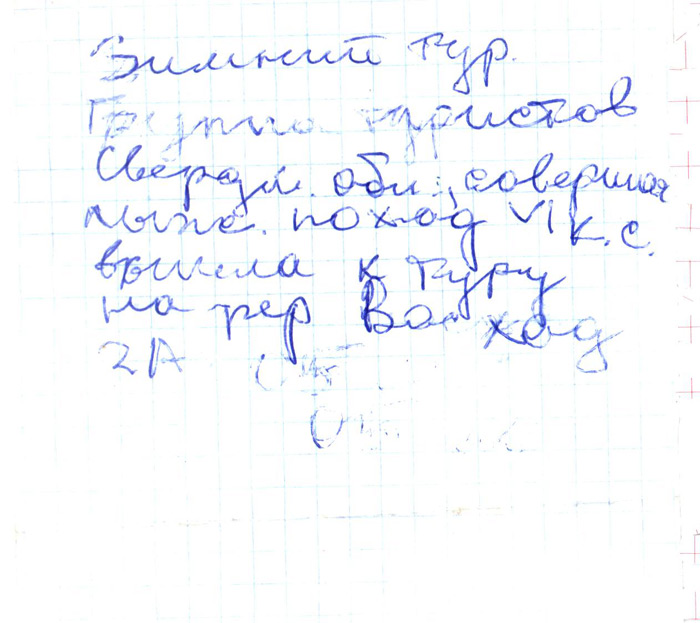 Зимний тур.
Группа туристов
Свердл. обл., совершая
лыжн. поход VI к.с.
вышла к туру
на пер Восход
2А